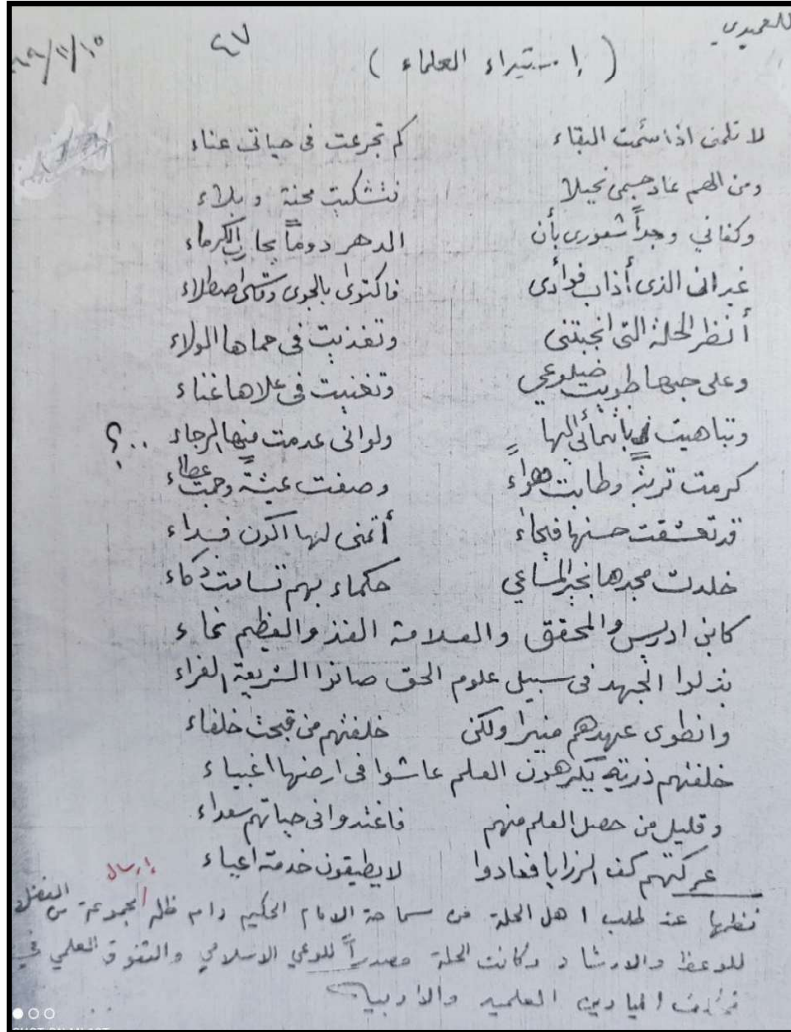 للعميدي
٤٧
( إستيراد العلماء )
لا تلمن اذا سئمت البقاء كم تجرعت في حياتي عناء
ومن الهم عاد جسمي نحيلا فتشكيت محنة وبلاء
وكفاني وجداً شعوري بأن الدهر دوماً يحارب الكرماء
غير اني الذي أذاب فؤادي فاكتوى بالجوى وقاسى اصطلاء
أنظر الحلة التي انجبتني وتغذيت في حماها الولاء
وعلى حبها طويت ضلوعي وتغنيت في علاها غناء
وتباهيت بانتمائي إليها ولو اني عدمت منها الرجاء ..؟
كرمت تربةً وطابت هواءً وصفت عيشةً وجمت عطاء
قد تعشقت حسنها فبحاء أتمنى لها اكون فداء
خلدت مجدها بخير المساعي حكماء بهم تسامت ذكاء
كابن ادريس والمحقق والعلامة الفذ والعظيم نماء
بذلوا الجهد في سبيل علوم الحق صانوا الشريعة الغراء
وانطوى عهدهم منيرا ولكن خلفتهم من قبحت خلفاء
خلفتهم ذرية يكرهون العلم عاشوا في ارضها اغبياء
وقليل من حصل العلم منهم فاغتدوا في حياتهم سعداء
عركتهم كف الرزايا فعادوا لا يطيقون خدمة اعياء
نظمها عند طلب اهل الحلة من سماحة الامام الحكيم دام ظله إرسال مجموعة من الفضلاء
للوعظ والارشاد وكانت الحلة مصدراً للوعي الاسلامي والتفوق العلمي في
مختلف الميادين العلمية والأدبية